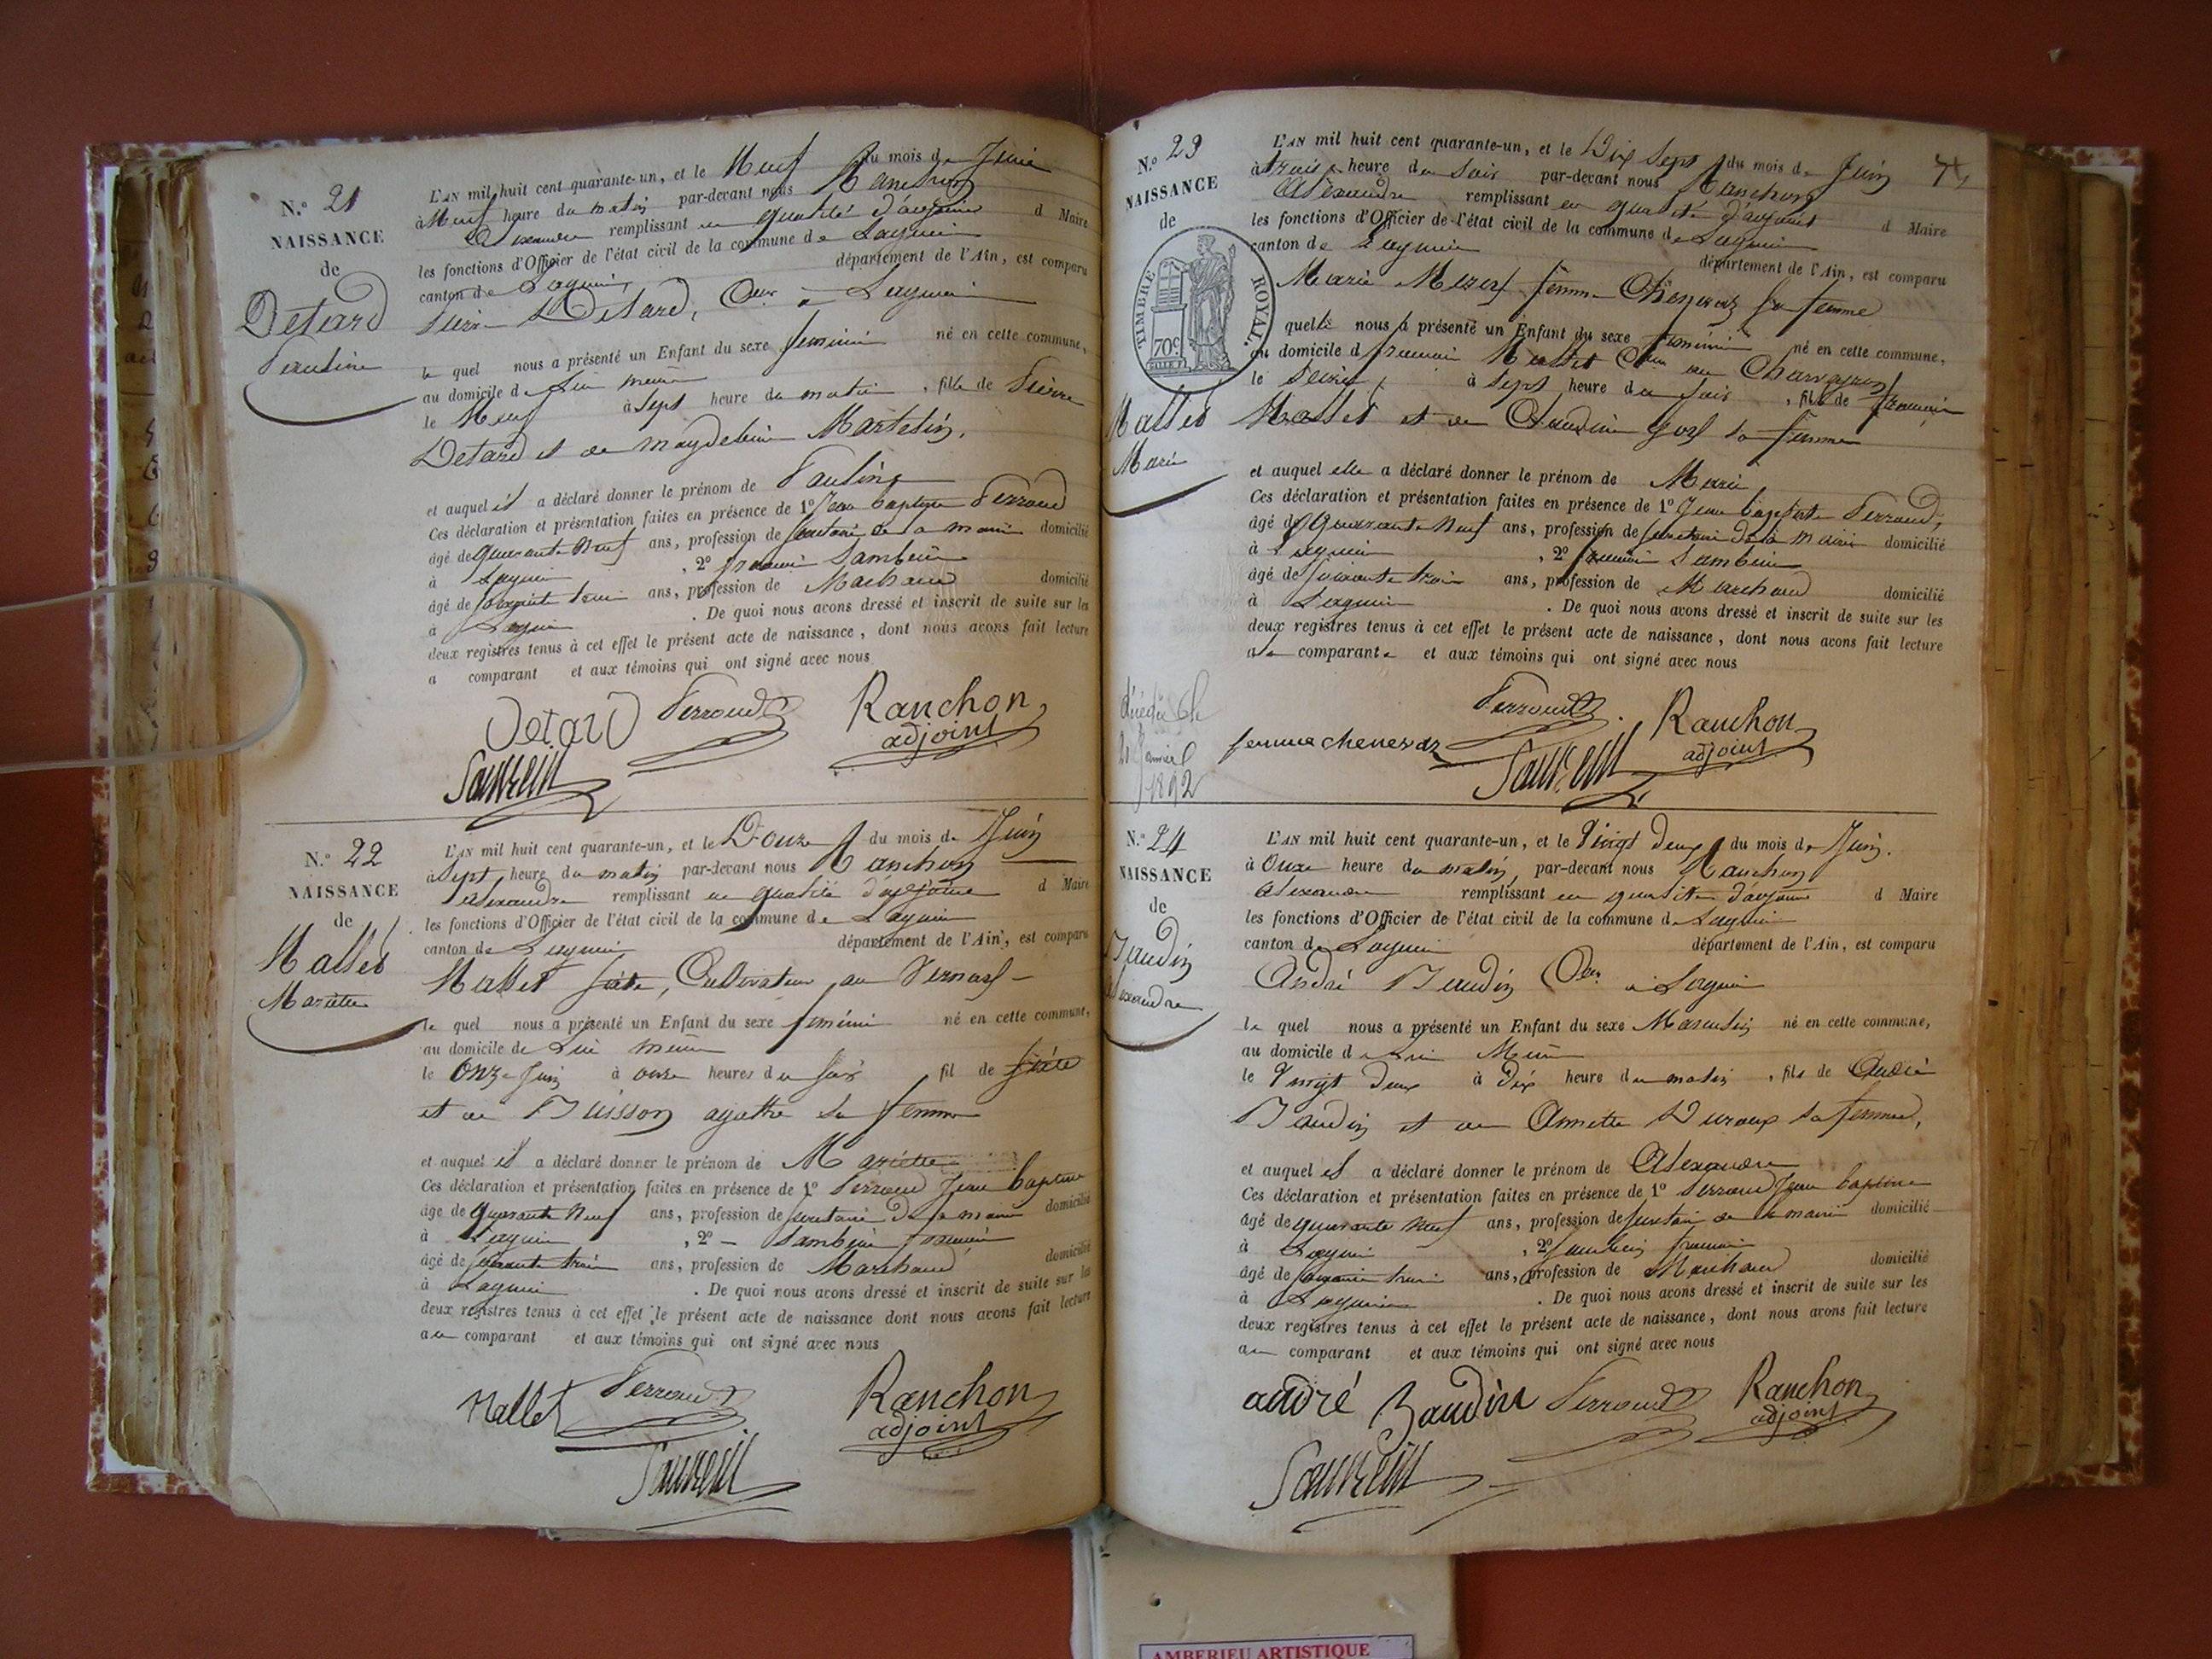 N.° 21
NAISSANCE
de
Detard
Pauline
L'AN mil huit cent quarante-un, et le Neuf du mois de Juin
à Neuf heure du matin par-devant nous Ranchon
Alexandre remplissant en qualité d'adjoint d Maire
les fonctions d'Officier de l'état civil de la commune de Lagnieu
canton de Lagnieu département de l'Ain, est comparu
Detard, à Lagnieu
le quel nous a présenté un Enfant du sexe feminin né en cette commune,
au domicile de Lui meme
le Neuf à Sept heure du matin, fille de Pierre
Detard et de magdeleine Martelin.
et auquel il a déclaré donner le prénom de Pauline
Ces déclaration et présentation faites en présence de 1° Jean baptiste Perroud
âgé de quarante Neuf ans, profession de secretaire de la mairie domicilié
à Lagnieu, 2° Sambein
âgé de soixante trois ans, profession de Marchand domicilié
à Lagnieu. De quoi nous avons dressé et inscrit de suite sur les
deux registres tenus à cet effet le présent acte de naissance, dont nous avons fait lecture
a comparant et aux témoins qui ont signé avec nous
Detard Perroud Ranchon
adjoint
N.° 22
NAISSANCE
de
Mallet
Mariette
L'AN mil huit cent quarante-un, et le Douze du mois de Juin
à Sept heure du matin par-devant nous Ranchon
Alexandre remplissant en qualité d'adjoint d Maire
les fonctions d'Officier de l'état civil de la commune de Lagnieu
canton de Lagnieu département de l'Ain, est comparu
Mallet, Cultivateur au
le quel nous a présenté un Enfant du sexe feminin né en cette commune,
au domicile de Lui meme
le Onze Juin à onze heures du soir fil de
et de Buisson agathe sa femme
et auquel il a déclaré donner le prénom de Mariette
Ces déclaration et présentation faites en présence de 1° Perroud Jean baptiste
âgé de quarante Neuf ans, profession de secretaire de la mairie domicilié
à Lagnieu, 2° Sambein
âgé de soixante trois ans, profession de Marchand domicilié
à Lagnieu. De quoi nous avons dressé et inscrit de suite sur les
deux registres tenus à cet effet le présent acte de naissance dont nous avons fait lecture
au comparant et aux témoins qui ont signé avec nous
Mallet Perroud Ranchon
adjoint
N.° 23
NAISSANCE
de
TIMBRE ROYAL.
70c
Mallet
Marie
L'AN mil huit cent quarante-un, et le Dix Sept du mois de Juin
à trois heure du soir par-devant nous Ranchon
Alexandre remplissant en qualité d'adjoint d Maire
les fonctions d'Officier de l'état civil de la commune de Lagnieu
canton de Lagnieu département de l'Ain, est comparu
Marie femme Chenevaz Sa femme
quelle nous a présenté un Enfant du sexe feminin né en cette commune,
au domicile d Mallet au
le à Sept heure du soir, fille de
Mallet et de Claudine sa femme
et auquel elle a déclaré donner le prénom de Marie
Ces déclaration et présentation faites en présence de 1° Jean baptiste Perroud,
âgé de Quarante Neuf ans, profession de secretaire de la mairie domicilié
à Lagnieu, 2° Sambein
âgé de soixante trois ans, profession de Marchand domicilié
à Lagnieu. De quoi nous avons dressé et inscrit de suite sur les
deux registres tenus à cet effet le présent acte de naissance, dont nous avons fait lecture
a la comparante et aux témoins qui ont signé avec nous
1892
femme chenevaz Perroud Ranchon
adjoint
N.° 24
NAISSANCE
de
Baudin
Alexandre
L'AN mil huit cent quarante-un, et le Vingt Deux du mois de Juin.
à Onze heure du matin, par-devant nous Ranchon
Alexandre remplissant en qualité d'adjoint d Maire
les fonctions d'Officier de l'état civil de la commune de Lagnieu
canton de Lagnieu département de l'Ain, est comparu
André Baudin à Lagnieu
le quel nous a présenté un Enfant du sexe Masculin né en cette commune,
au domicile de Lui Meme
le Vingt Deux à Dix heure du matin, fils de André
Baudin et de Annette Duroux sa femme,
et auquel il a déclaré donner le prénom de Alexandre
Ces déclaration et présentation faites en présence de 1° Perroud Jean baptiste
âgé de quarante neuf ans, profession de secretaire de la mairie domicilié
à Lagnieu, 2° Sambein
âgé de soixante trois ans, profession de Marchand domicilié
à Lagnieu. De quoi nous avons dressé et inscrit de suite sur les
deux registres tenus à cet effet le présent acte de naissance, dont nous avons fait lecture
au comparant et aux témoins qui ont signé avec nous
andré Baudin Perroud Ranchon
adjoint
AMBERIEU ARTISTIQUE